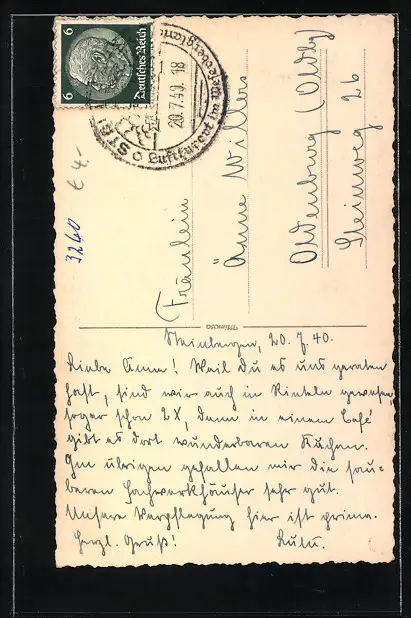 6 6
Deutsches Reich
20.7.40. 18
Luftkurort im Weserbergland
€ 4.-
3240
Fräulein
Änne Willers
Oldenburg (Oldbg)
Steinweg 26
Mimosa
Steinbergen, 20. 7. 40.
Liebe Änne! Weil Du es uns geraten
hast, sind wir auch in Rinteln gewesen,
sogar schon 2X, denn in einem Café
gibt es dort wunderbaren Kuchen.
Im übrigen gefallen mir die sau-
beren Fachwerkhäuser sehr gut.
Unsere Verpflegung hier ist prima.
Herzl. Gruß! Lulu.